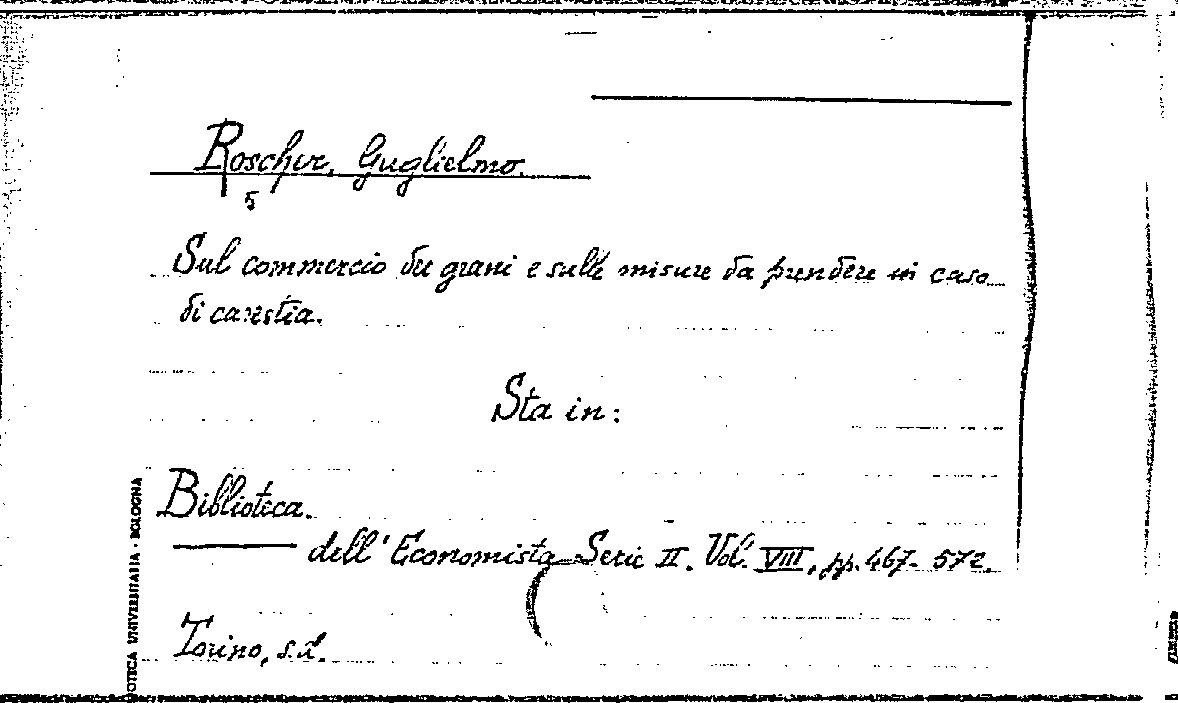 Roscher, Guglielmo.
5
Sul commercio dei grani e sulle misure da prendere in caso
di carestia.
Sta in:
Biblioteca.
dell'Economista Serie II. Vol. VIII, pp. 467-572.
Torino, s.d.
OTECA UNIVERSITARIA - BOLOGNA